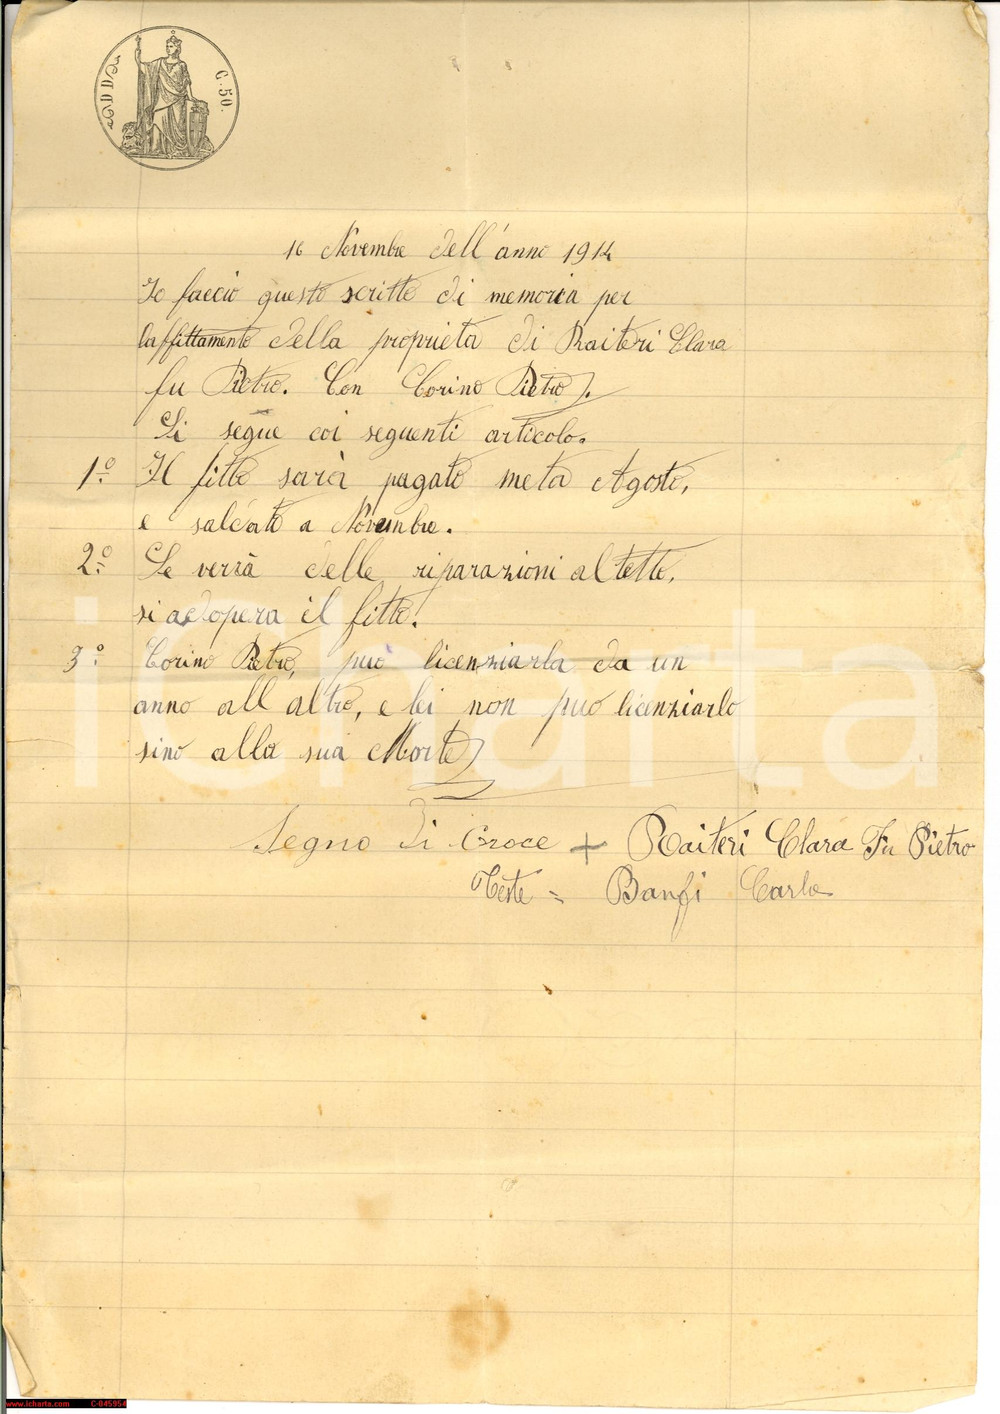 C. 50.
16 Novembre dell'anno 1914
Io faccio questo scritto di memoria per
laffittamento della proprieta di Raiteri Clara
fu Pietro. Con Corino Pietro.
Si segue coi seguenti articolo.
1º Il fitto sarà pagato meta Agosto,
e saldato a Novembre.
2º Se verrà delle riparazioni al tetto,
si adopera il fitto.
3º Corino Pietro, può licenziarla da un
anno all altro, e lei non può licenziarlo
sino alla sua Morte
Segno di Croce + Raiteri Clara Fu Pietro
Teste = Banfi Carlo
icharta
www.icharta.com C-045954